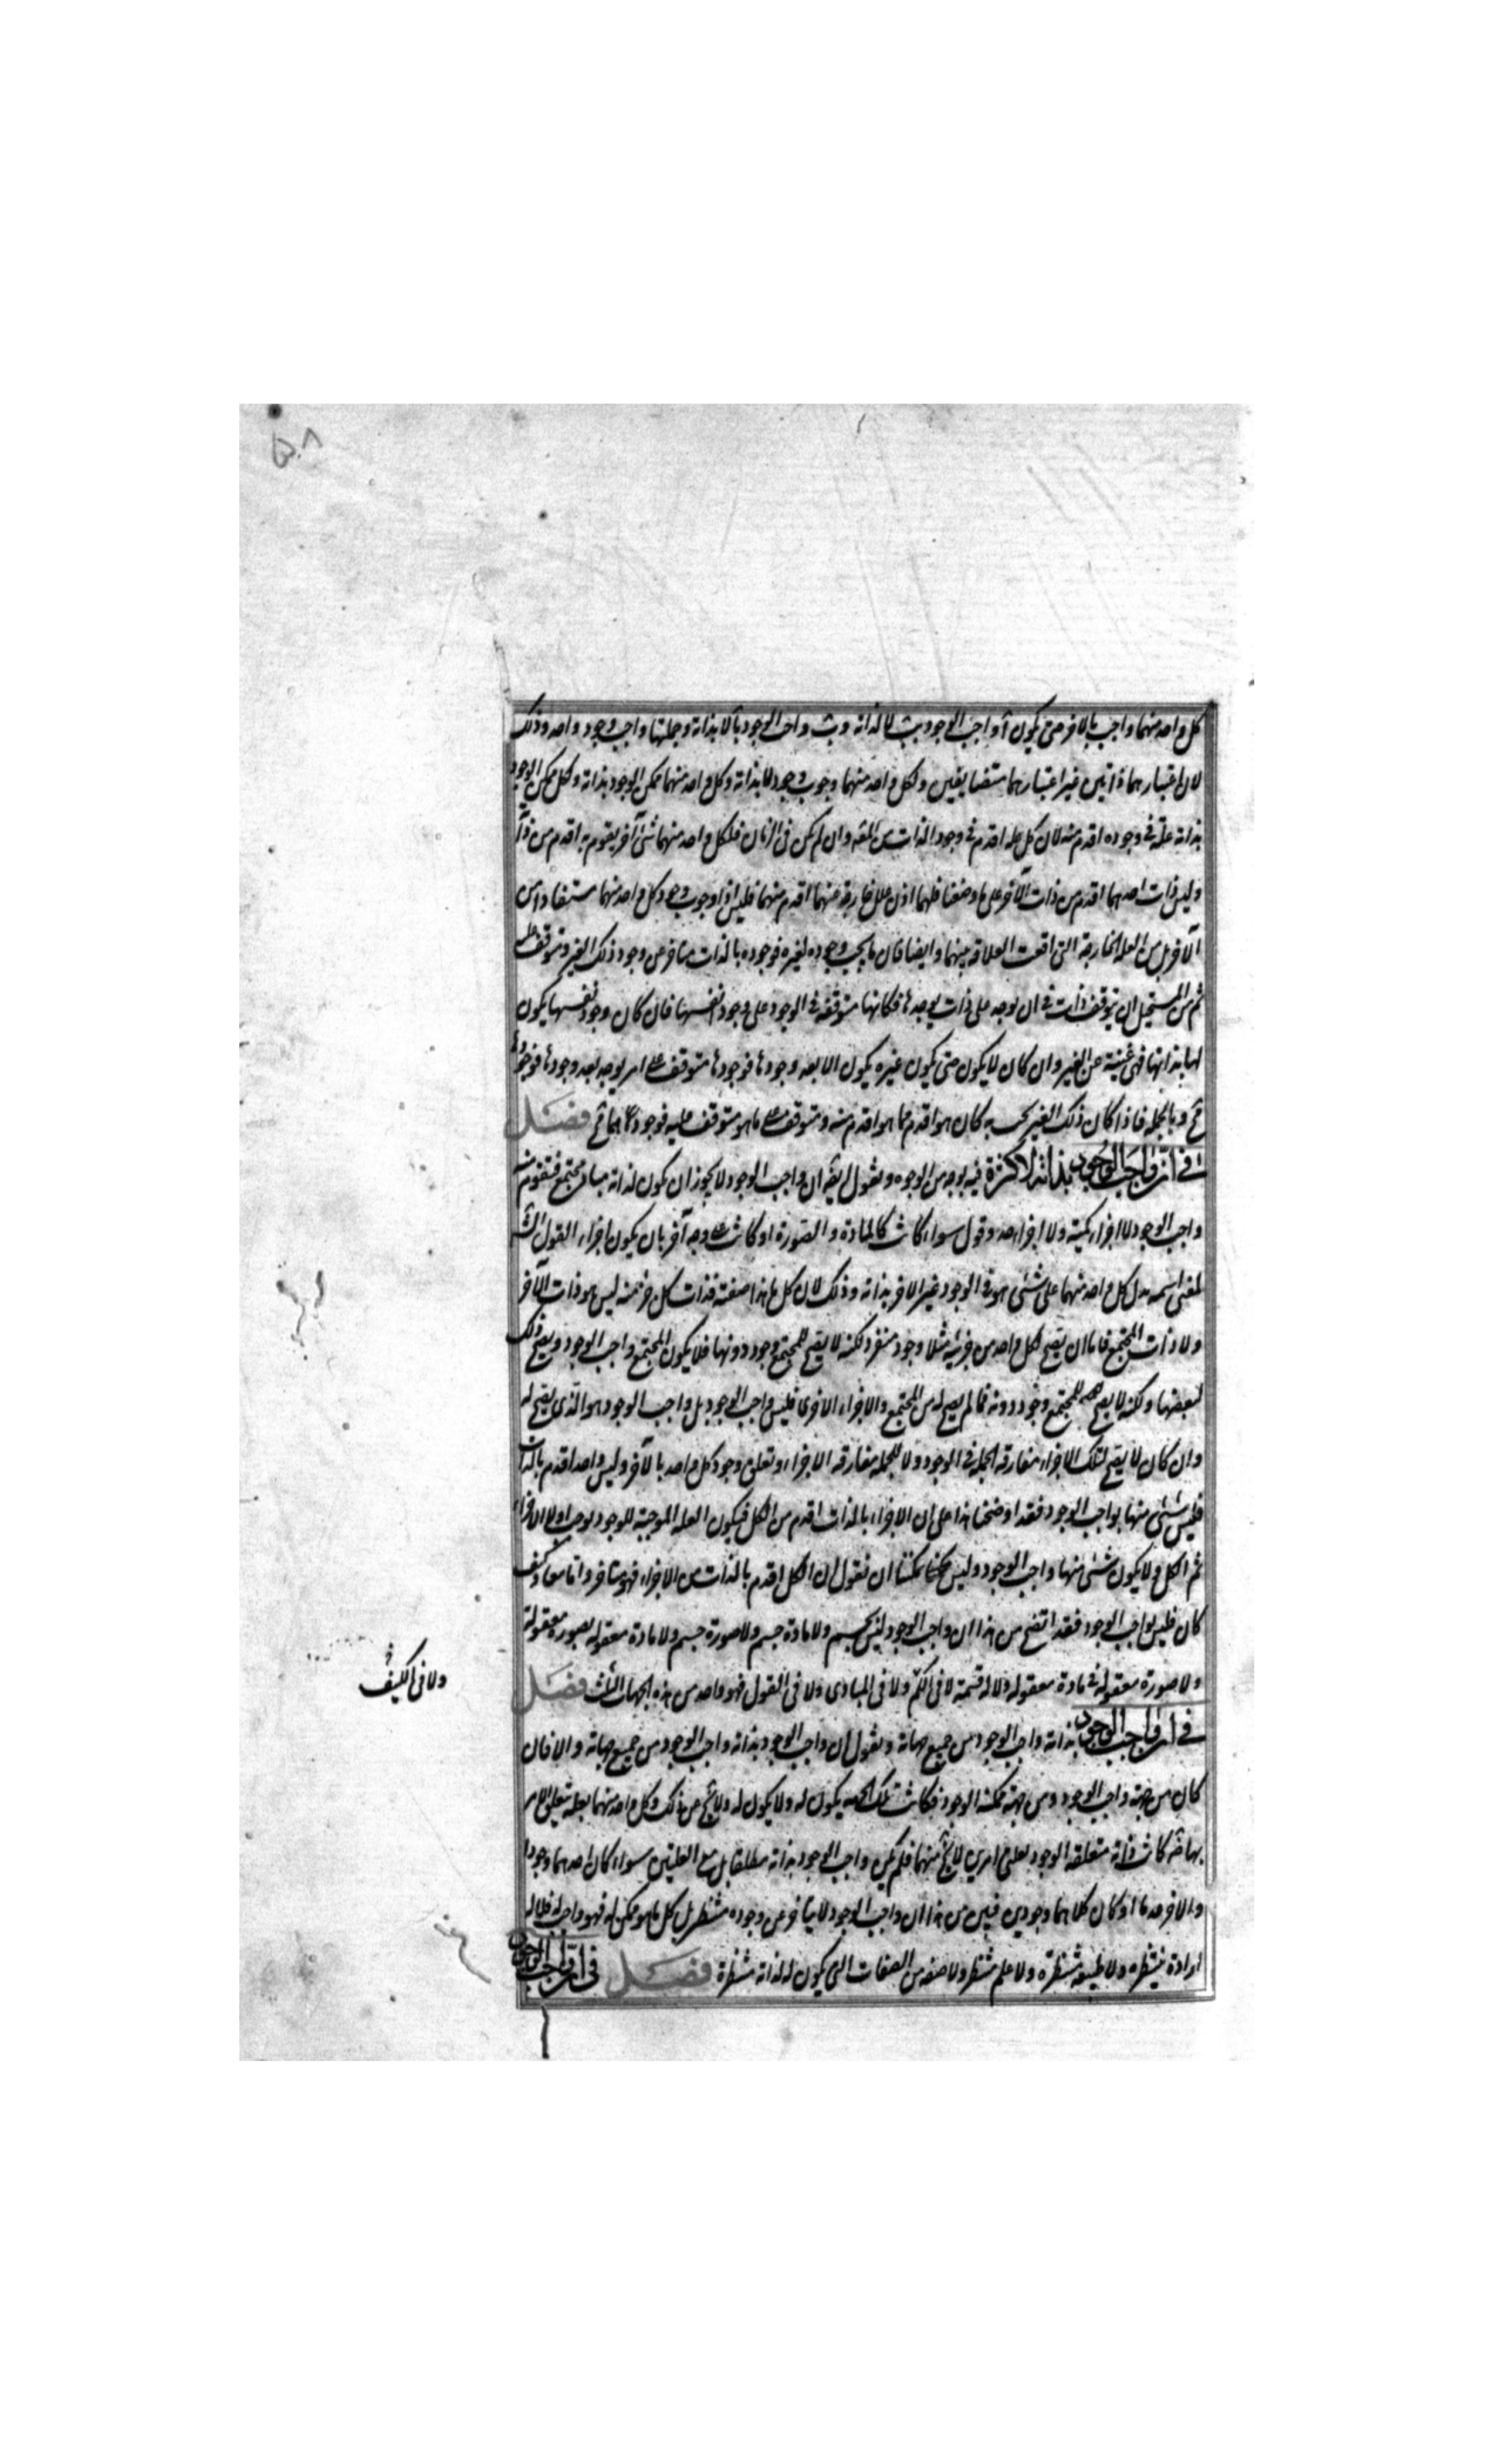 كل واحد منهما واجب بالاخر حتى يكون آ واجب الوجود بب لا لذاته وب واجب الوجود بآ لا بذاته وجملتها واجب وجود واحد وذلك
لان اعتبارهما ذاتين غير اعتبارهما متضايفين ولكل واحد منهما وجوب وجود لا بذاته وكل واحد منهما ممكن الوجود بذاته ولكل ممكن الوجود
بذاته علة في وجوده اقدم منه لان كل علة اقدم في وجود الذات من المعلول وان لم يكن في الزمان فلكل واحد منهما شئ آخر يقوم به اقدم من ذاته
وليس ذات احدهما اقدم من ذات الآخر على ما وضعنا فلهما اذن علل خارجة منهما اقدم منهما فليس اذا وجوب وجود كل واحد منهما مستفادا من
الآخر بل من العلة الخارجة التي اوقعت العلاقة بينهما وايضا فان ما يجب وجوده لغيره فوجوده بالذات متاخر عن وجود ذلك الغير ومتوقف عليه
ثم من المستحيل ان يتوقف ذات في ان يوجد على ذات يوجد بها فكانها متوقفة في الوجود على وجود نفسها فان كان وجود نفسها يكون
لها بذاتها فهي غنية عن الغير وان كان لا يكون حتى يكون غيره يكون الا بعد وجودها فوجودها متوقف على امر يوجد بعد وجودها فوجودها
مح وبالجملة فاذا كان ذلك الغير يجب به كان هو اقدم مما هو اقدم منه ومتوقف على ما هو متوقف عليه فوجودهما مح فصل
في ان واجب الوجود بذاته لا كثرة فيه بوجه من الوجوه ونقول ايضا ان واجب الوجود لا يجوز ان يكون لذاته مباد تجتمع فتقوم منه
واجب الوجود لا اجزاء كمية ولا اجزاء حد وقول سواء كانت كالمادة والصورة او كانت على وجه آخر بان يكون اجزاء القول الشارح
لمعنى اسمه يدل كل واحد منهما على شئ هو في الوجود غير الاخر بذاته وذلك لان كل ما هذا صفته فذات كل جزء منه ليس هو ذات الآخر
ولا ذات المجتمع فاما ان يصح لكل واحد من جزئيه مثلا وجود منفرد لكنه لا يصح للمجتمع وجود دونها فلا يكون المجتمع واجب الوجود ويصح ذلك
لبعضها ولكنه لا يصح للمجتمع وجود دونه فما لم يصح له من المجتمع والاجزاء الاخرى فليس واجب الوجود بل واجب الوجود هو الذي يصح له
وان كان لا يصح لتلك الاجزاء مفارقة الجملة في الوجود ولا للجملة مفارقة الاجزاء وتعلق وجود كل واحد بالآخر وليس واحد اقدم بالذات
فليس شئ منها بواجب الوجود فقد اوضحنا هذا على ان الاجزاء بالذات اقدم من الكل فيكون العلة الموجبة للوجود يوجب اولا الاجزاء
ثم الكل ولا يكون شئ منها واجب الوجود وليس يمكننا ان نقول ان الكل اقدم بالذات من الاجزاء فهو متاخر واما معا وكيف
كان فليس بواجب الوجود فقد اتضح من هذا ان واجب الوجود ليس بجسم ولا مادة جسم ولا صورة جسم ولا مادة معقولة بصورة معقولة
ولا صورة معقولة في مادة معقولة ولا له قسمة لا في الكم ولا في المبادى ولا في القول فهو واحد من هذه الجهات الثلث فصل
ولا في الكيف
في ان واجب الوجود بذاته واجب الوجود من جميع جهاته ونقول ان واجب الوجود بذاته واجب الوجود من جميع جهاته والا فان
كان من جهة واجب الوجود ومن جهة ممكنة الوجود فكانت تلك الجهة يكون له ولا يكون له ولا يخ عن ذلك وكل واحد منهما بعلة يتعلق الامر
بها ضرورة كانت ذاته متعلقة الوجود بعلتي امرين لا يخ منهما فلم يكن واجب الوجود بذاته مطلقا بل مع العلتين سواء كان احدهما وجودا
والاخر عدما او كان كلاهما وجوديين فبين من هذا ان واجب الوجود لا يتاخر عن وجوده منتظر بل كل ما هو ممكن له فهو واجب له فلا له
ارادة منتظرة ولا طبيعة منتظرة ولا علم منتظر ولا صفة من الصفات التي يكون له لذاته منتظرة فصل في ان واجب الوجود